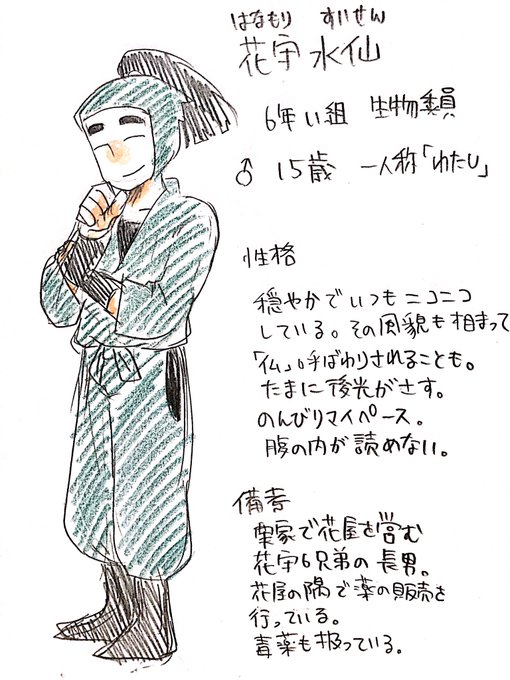 はなもり すいせん
花守 水仙
6年い組 生物委員
♂ 15歳 一人称「わたし」
性格
穏やかでいつもニコニコ
している。その風貌も相まって
「仏」呼ばわりされることも。
たまに後光がさす。
のんびりマイペース。
腹の内が読めない。
備考
実家で花屋を営む
花守6兄弟の長男。
花屋の隅で薬の販売を
行っている。
毒薬も扱っている。